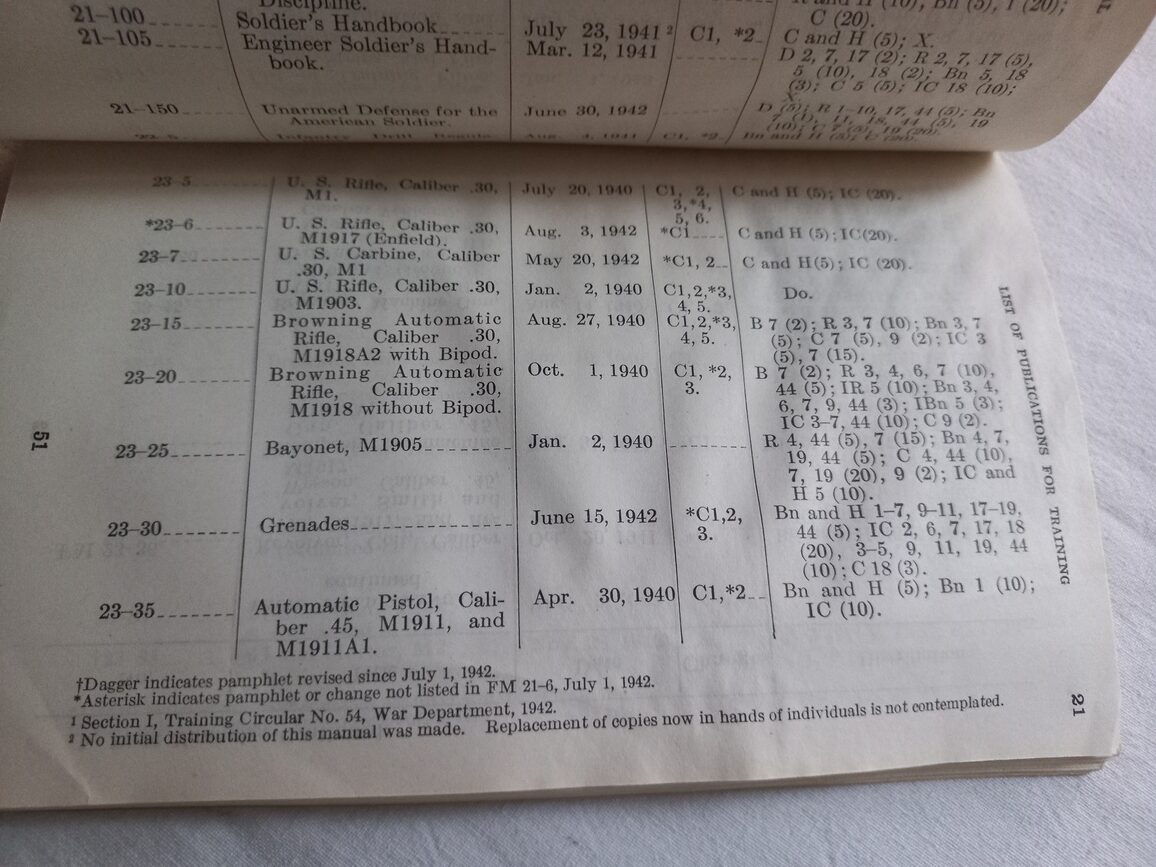 Discipline.
21–100 Soldier's Handbook July 23, 1941 ² C1, *2 C (20).
21–105 Engineer Soldier's Hand- Mar. 12, 1941 C and H (5); X.
book. D 2, 7, 17 (2); R 2, 7, 17 (5),
5 (10), 18 (2); Bn 5, 18
(3); C 5 (5); IC 18 (10);
X.
21–150 Unarmed Defense for the June 30, 1942 D (5); R 1–10, 17, 44 (5); Bn
American Soldier. 7 (1), 11, 18, 44 (5), 19
(10); C 7 (5), 19 (20).
23–5 U. S. Rifle, Caliber .30, July 20, 1940 C1, 2, C and H (5); IC (20).
M1. 3,*4,
5, 6.
*23–6 U. S. Rifle, Caliber .30, Aug. 3, 1942 *C1 C and H (5); IC(20).
M1917 (Enfield).
23–7 U. S. Carbine, Caliber May 20, 1942 *C1, 2 C and H(5); IC (20).
.30, M1
23–10 U. S. Rifle, Caliber .30, Jan. 2, 1940 C1,2,*3, Do.
M1903. 4, 5.
23–15 Browning Automatic Aug. 27, 1940 C1,2,*3, B 7 (2); R 3, 7 (10); Bn 3, 7
Rifle, Caliber .30, 4, 5. (5); C 7 (5), 9 (2); IC 3
M1918A2 with Bipod. (5), 7 (15).
23–20 Browning Automatic Oct. 1, 1940 C1, *2, B 7 (2); R 3, 4, 6, 7 (10),
Rifle, Caliber .30, 3. 44 (5); IR 5 (10); Bn 3, 4,
M1918 without Bipod. 6, 7, 9, 44 (3); IBn 5 (3);
IC 3–7, 44 (10); C 9 (2).
23–25 Bayonet, M1905 Jan. 2, 1940 R 4, 44 (5), 7 (15); Bn 4, 7,
19, 44 (5); C 4, 44 (10),
7, 19 (20), 9 (2); IC and
H 5 (10).
23–30 Grenades June 15, 1942 *C1,2, Bn and H 1–7, 9–11, 17–19,
3. 44 (5); IC 2, 6, 7, 17, 18
(20), 3–5, 9, 11, 19, 44
(10); C 18 (3).
23–35 Automatic Pistol, Cali- Apr. 30, 1940 C1,*2 Bn and H (5); Bn 1 (10);
ber .45, M1911, and IC (10).
M1911A1.
†Dagger indicates pamphlet revised since July 1, 1942.
*Asterisk indicates pamphlet or change not listed in FM 21–6, July 1, 1942.
¹ Section I, Training Circular No. 54, War Department, 1942.
² No initial distribution of this manual was made. Replacement of copies now in hands of individuals is not contemplated.
51
LIST OF PUBLICATIONS FOR TRAINING
21